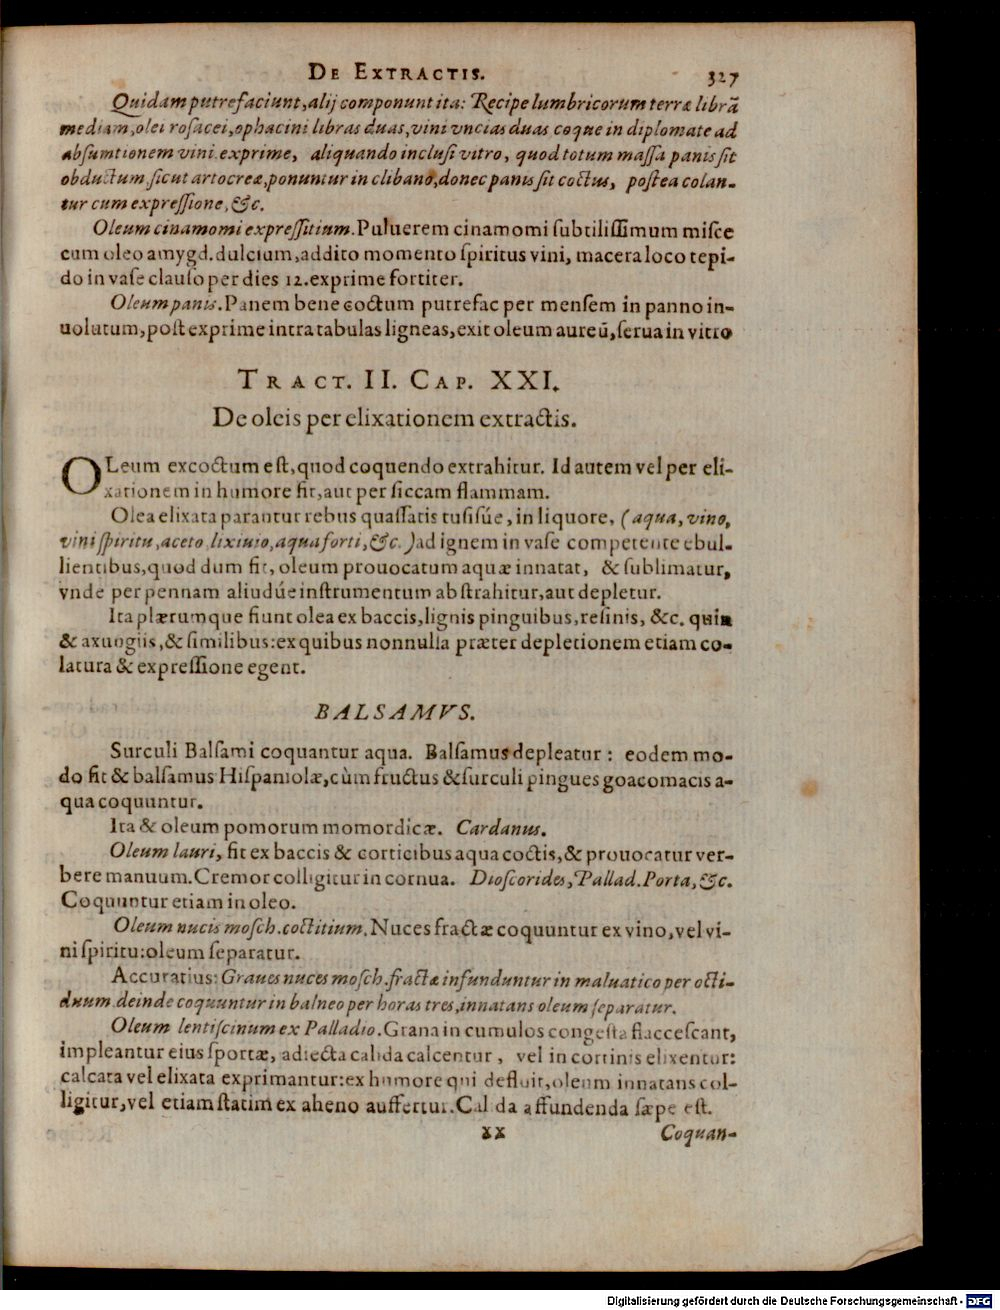 DE EXTRACTIS. 327
Quidam putrefaciunt, alij componunt ita: Recipe lumbricorum terræ librã
mediam, olei rosacei, ophacini libras duas, vini vncias duas coque in diplomate ad
absumtionem vini exprime, aliquando inclusi vitro, quod totum massa panis sit
obductum sicut artocreæ, ponuntur in clibano, donec panis sit coctus, postea colan-
tur cum expressione, &c.
Oleum cinamomi expressitium. Puluerem cinamomi subtilissimum misce
cum oleo amygd. dulcium, addito momento spiritus vini, macera loco tepi-
do in vase clauso per dies 12. exprime fortiter.
Oleum panis. Panem bene coctum putrefac per mensem in panno in-
uolutum, post exprime intra tabulas ligneas, exit oleum aureũ, serua in vitro
TRACT. II. CAP. XXI.
De oleis per elixationem extractis.
OLeum excoctum est, quod coquendo extrahitur. Id autem vel per eli-
xationem in humore fit, aut per siccam flammam.
Olea elixata parantur rebus quassatis tusisúe, in liquore, (aqua, vino,
vini spiritu, aceto lixiuio, aqua forti, &c.) ad ignem in vase competente ebul-
lientibus, quod dum fit, oleum prouocatum aquæ innatat, & sublimatur,
vnde per pennam aliudúe instrumentum abstrahitur, aut depletur.
Ita plærumque fiunt olea ex baccis, lignis pinguibus, resinis, &c. quin
& axungiis, & similibus: ex quibus nonnulla præter depletionem etiam co-
latura & expressione egent.
BALSAMVS.
Surculi Balsami coquantur aqua. Balsamus depleatur: eodem mo-
do fit & balsamus Hispaniolæ, cùm fructus & surculi pingues goacomacis a-
qua coquuntur.
Ita & oleum pomorum momordicæ. Cardanus.
Oleum lauri, fit ex baccis & corticibus aqua coctis, & prouocatur ver-
bere manuum. Cremor colligitur in cornua. Dioscorides, Pallad. Porta, &c.
Coquuntur etiam in oleo.
Oleum nucis mosch. coctitium. Nuces fractæ coquuntur ex vino, vel vi-
ni spiritu: oleum separatur.
Accuratius: Graues nuces mosch. fractæ infunduntur in maluatico per octi-
duum deinde coquuntur in balneo per horas tres, innatans oleum separatur.
Oleum lentiscinum ex Palladio. Grana in cumulos congesta flaccescant,
impleantur eius sportæ, adiecta calida calcentur, vel in cortinis elixentur:
calcata vel elixata exprimantur: ex humore qui defluit, oleum innatans col-
ligitur, vel etiam statim ex aheno auffertur. Calida affundenda sæpe est.
xx Coquan-
Digitalisierung gefördert durch die Deutsche Forschungsgemeinschaft - DFG